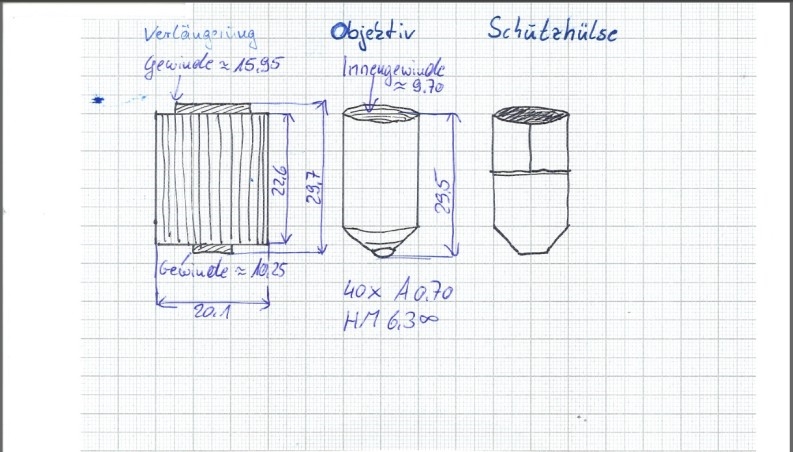 Verlängerung
Gewinde ≈ 15,95
22,6
29,7
Gewinde ≈ 10,25
20,1
Objektiv
Innengewinde
≈ 9,70
29,5
40x A 0,70
HM 6,3 ∞
Schutzhülse